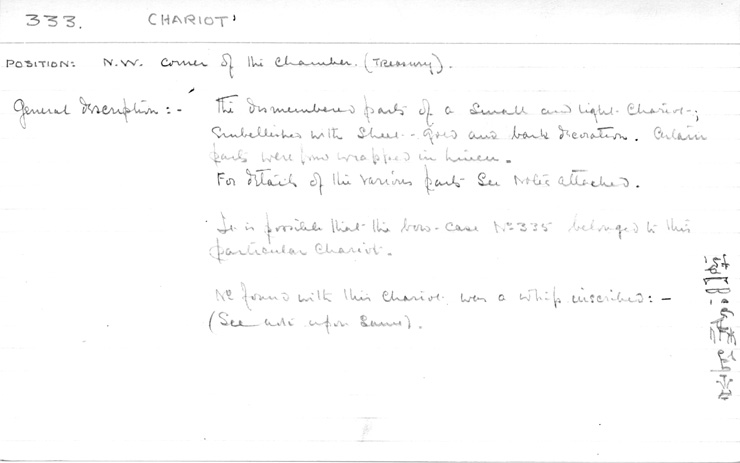 333. CHARIOT
POSITION: N.W. corner of the chamber. (Treasury).
General description:- The dismembered parts of a small and light chariot;
embellished with sheet-gold and bark decoration. Certain
parts were found wrapped in linen.
For details of the various parts see notes attached.
It is possible that the bow-case No 335 belonged to this
particular chariot.
found with this chariot was a whip inscribed:-
(See note upon same).